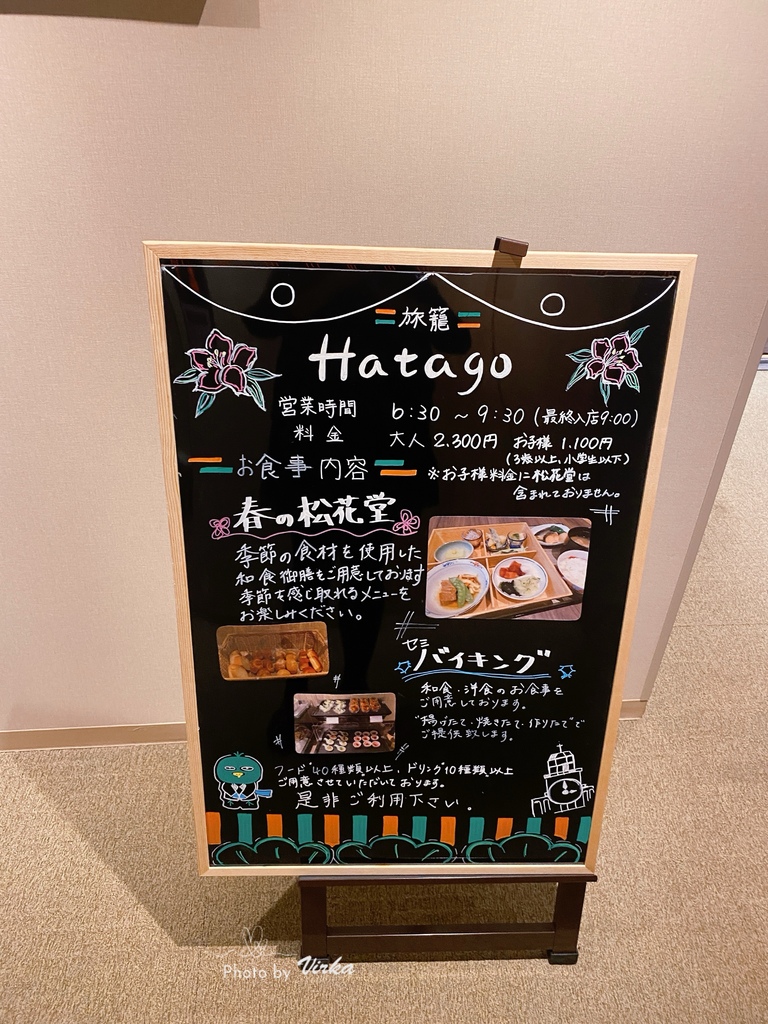 旅籠
Hatago
営業時間 6:30 ~ 9:30 (最終入店9:00)
料金 大人 2,300円 お子様 1,100円
(3歳以上,小学生以下)
お食事内容
※お子様料金に松花堂は
含まれておりません。
春の松花堂
季節の食材を使用した
和食御膳をご用意しております
季節を感じ取れるメニューを
お楽しみください。
セミ
バイキング
和食・洋食のお食事を
ご用意しております。
"揚げたて・焼きたて・作りたて"で
ご提供致します。
フード40種類以上、ドリンク10種類以上
ご用意させていただいております。
是非ご利用下さい。
Photo by Virka